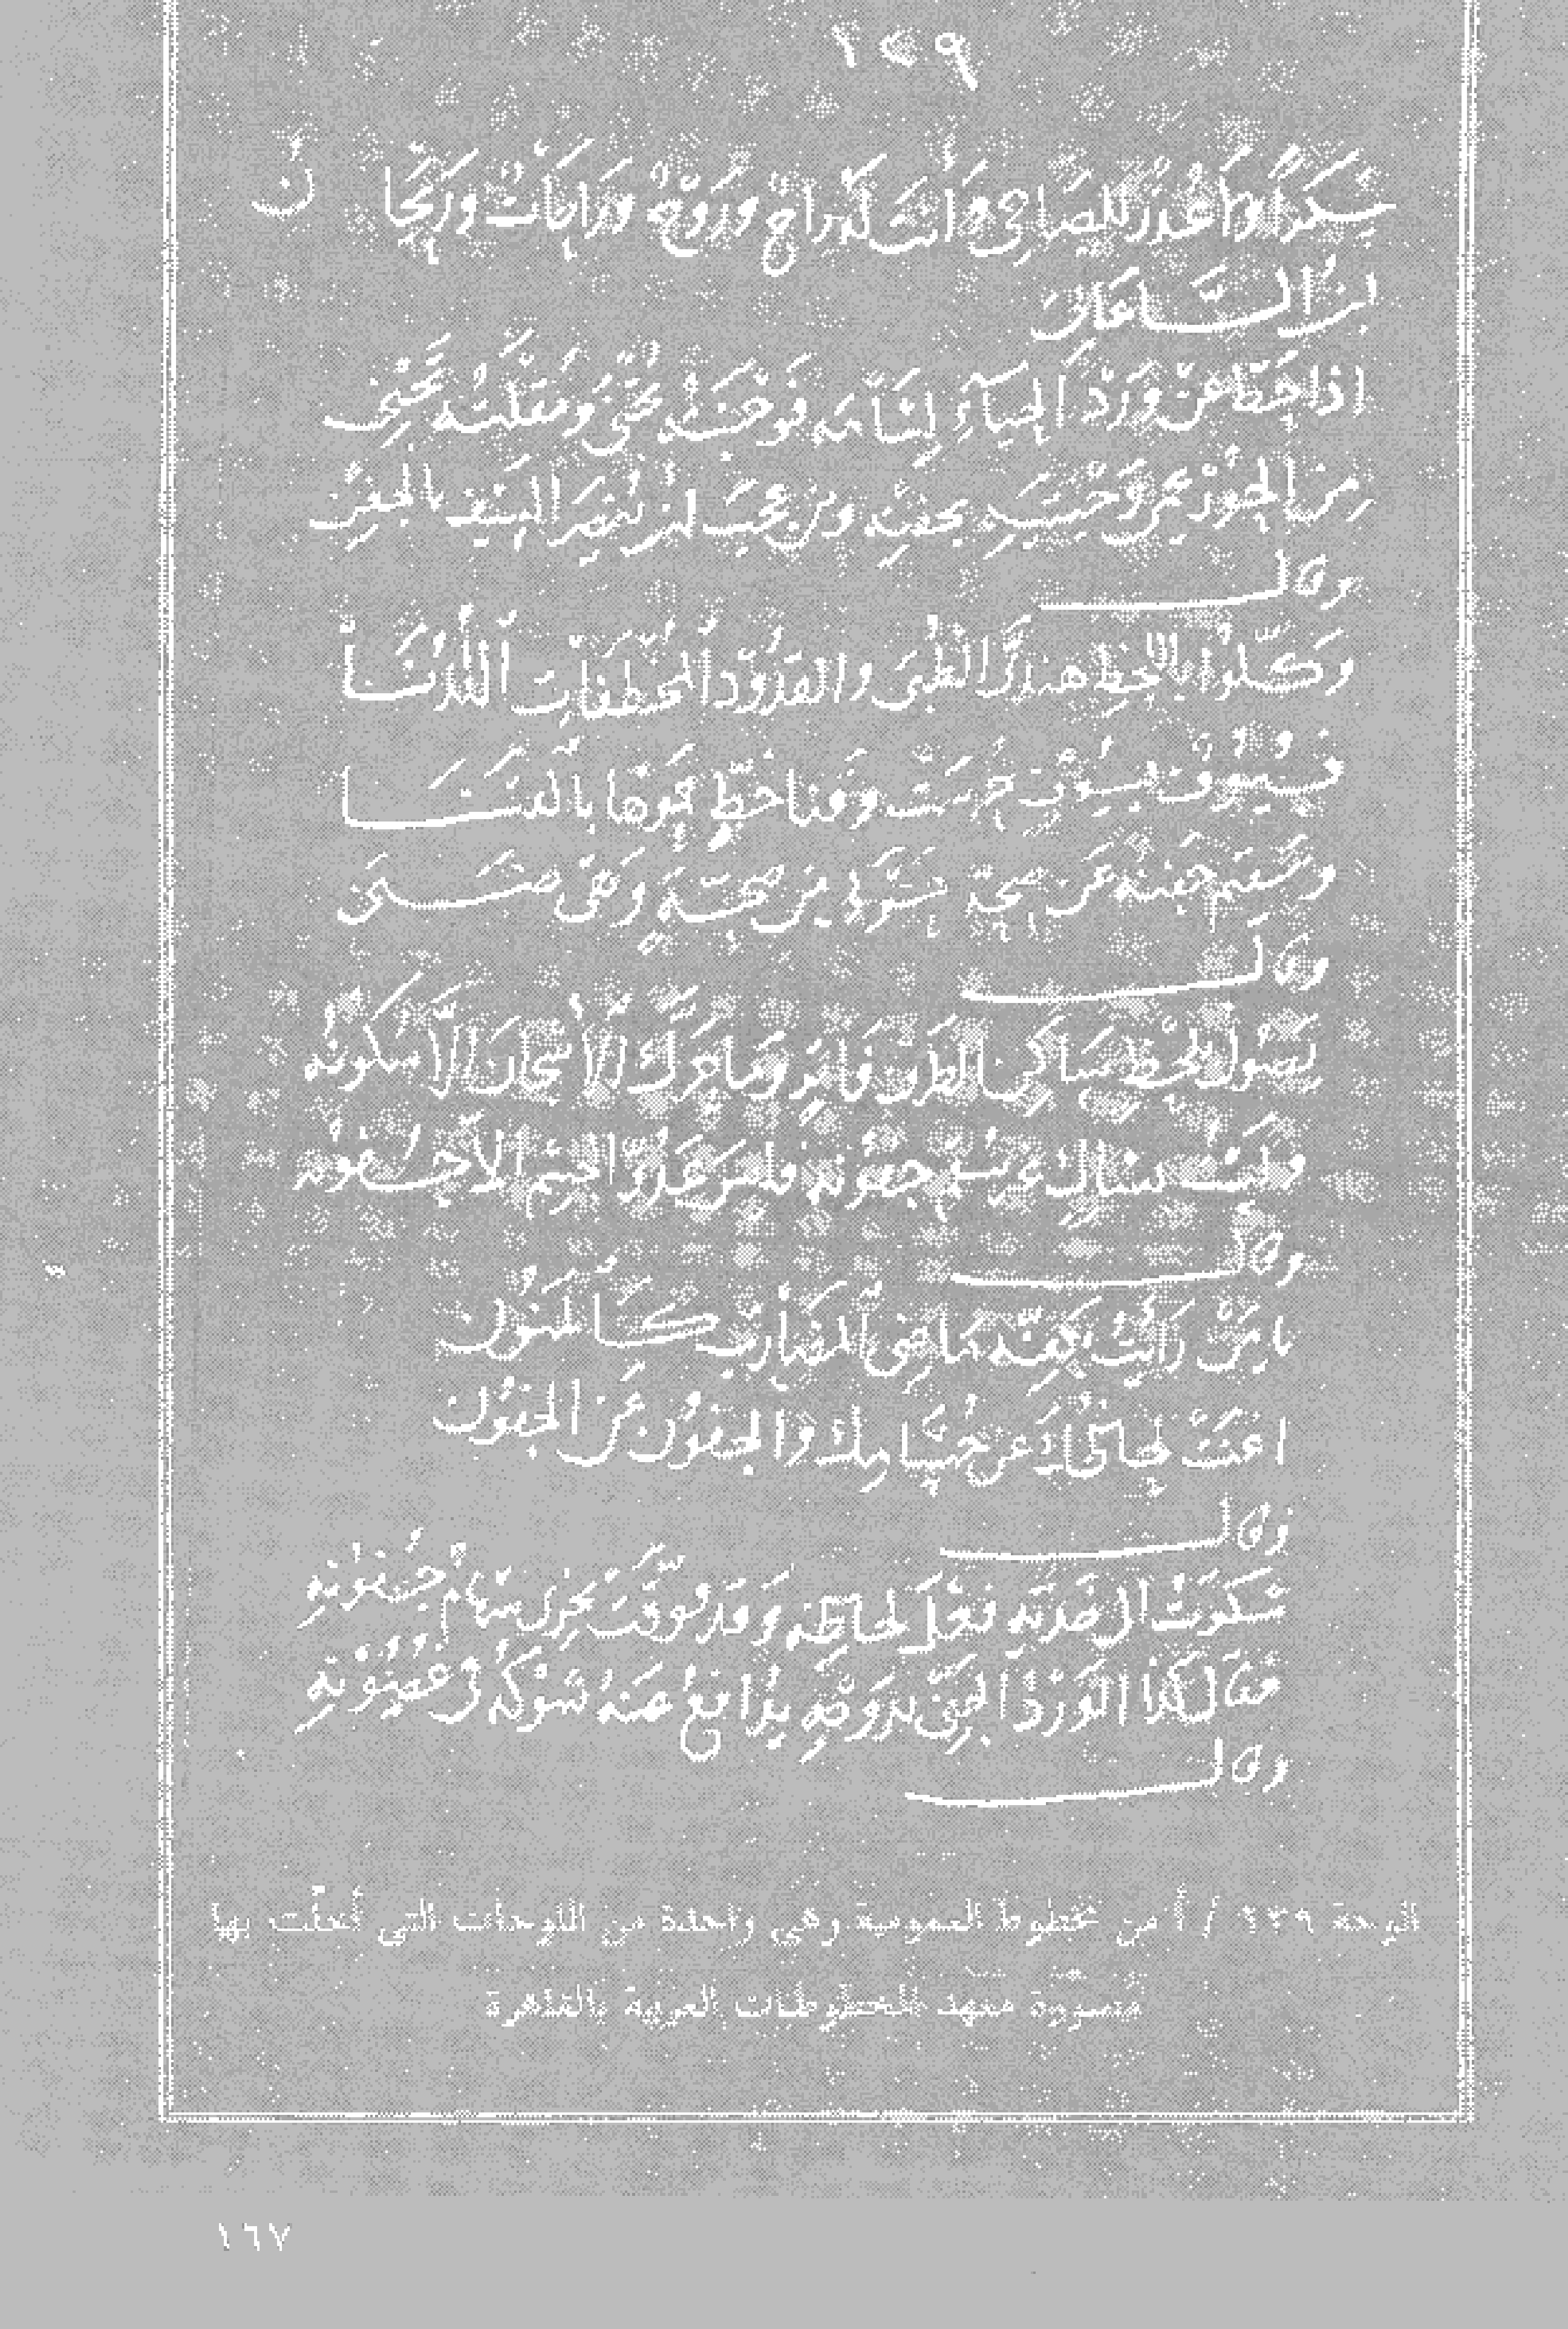 ١٣٩
سكرا وما عذر للصاحي وأنت له راح وروح وراحات وريحان
ابن الساعاتي
اذا حط عن ورد الحياء لثامه فوجنته تجني ومقلته تجني
من الحور عن وجنتيه بجفنه ومن عجب ان ينصر السيف بالجفن
وقال
وكلوا باللحظ هنديّ الظبى والقدود المخطفات اللدنا
فسيوف بسيوف حرست وقنا خط حموها بالقنا
وسقيم جفنه عن صحة من صحتي وعن
وقال
يصول بلحظ ساكن الطرف فاتر وما حرك الاشجان الا سكونه
وليست سقم جفونه فليس عدو الجسم الا جفونه
وقال
يا من رأيت بكفه ماضي المضارب كالمنون
اغنت لحاظك عن حسامك والجفون عن الجفون
وقال
شكوت الى خديه فعل لحاظه وقد فوقت نحوي سهام جفونه
فقال كذا الورد الجني بدوحه يدافع عنه شوكه في غصونه
وقال
الوحة ١٣٩ / أ من مخطوط العمومية وهي واحدة من اللوحات التي أخلّت بها
مصورة معهد المخطوطات العربية بالقاهرة
١٦٧